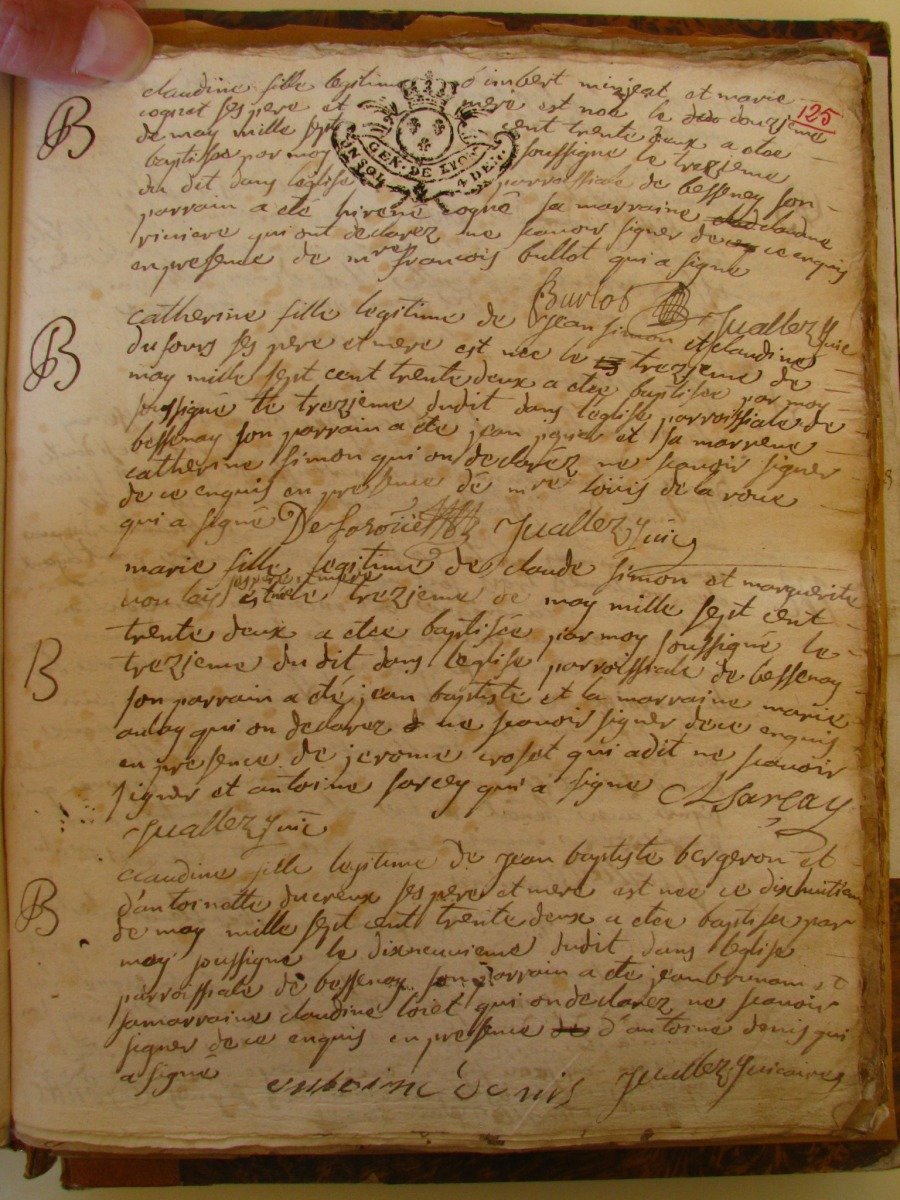 125
claudine fille legitime d'imbert et marie
cognet ses pere et mere est nee le douzjeme
de may mille sept cent trente deux a etee
baptisee par moy soussigne le trezjeme
du dit dans leglise parroissiale de bessenay son
parrain a eté cogné sa marraine claudine
riviere qui ont declarez ne scavoir signer de ce enquis
en presence de mre francois bullot qui a signe
GEN. DE LYON
4 DEN.
B
Burlot Juallez Vic
catherine fille legitime de Jean simon et claudine
dufours ses pere et mere est nee le trezjeme de
may mille sept cent trente deux a etee baptisee par moy
soussigné le trezjeme dudit dans leglise parroissiale de
bessenay son parrain a ete jean et sa marrene
catherine simon qui on declaréz ne scavoir signer
de ce enquis en presence de mre loüis de la roue
qui a signé De Laroüe Juallez Vic
B
marie fille legitime de claude simon et marguerite
ses pere et mere
est nee le trezjeme de may mille sept cent
trente deux a etee baptisée par moy soussigné le
trezjeme du dit dans leglise parroissiale de bessenay
son parrain a eté jean baptiste et la marraine marie
qui on declarez ne scavoir signer de ce enquis
en presence de jerome croset qui a dit ne scavoir
signer et antoine sarcey qui a signe A Sarcay
Juallez Vic
B
claudine fille legitime de Jean baptiste bergeron et
d'antoinette ducreux ses pere et mere est nee le dixhuitiem
de may mille sept cent trente deux a etee baptisee par
moy soussigne le dixneuvieme dudit dans leglise
parroissiale de bessenay son parrain a ete jean et
sa marraine claudine loret qui on declarez ne scavoir
signer de ce enquis en presence d'antoine denis qui
a signé
antoine denis Juallez Vicaire
B